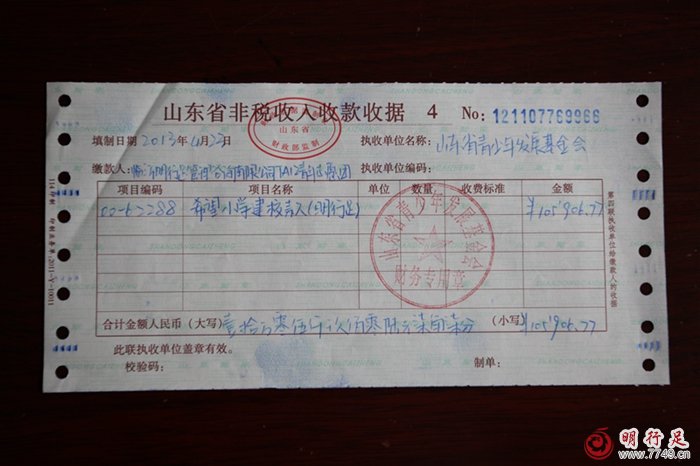 山东省非税收入收款收据 4 No: 121107769966
山东省
财政部监制
填制日期 2013年4月23日 执收单位名称: 山东省青少年发展基金会
缴款人: 执收单位编码:
项目编码 项目名称 单位 数量 收费标准 金额
希望小学建校款(明行足) ¥105906.77
山东省青少年发展基金会
财务专用章
合计金额人民币(大写) 壹拾万零伍仟玖佰零陆元柒角柒分 (小写) ¥105906.77
此联执收单位盖章有效。
校验码: 制单:
第四联执收单位给缴款人的收据
明行足
www.7749.cn